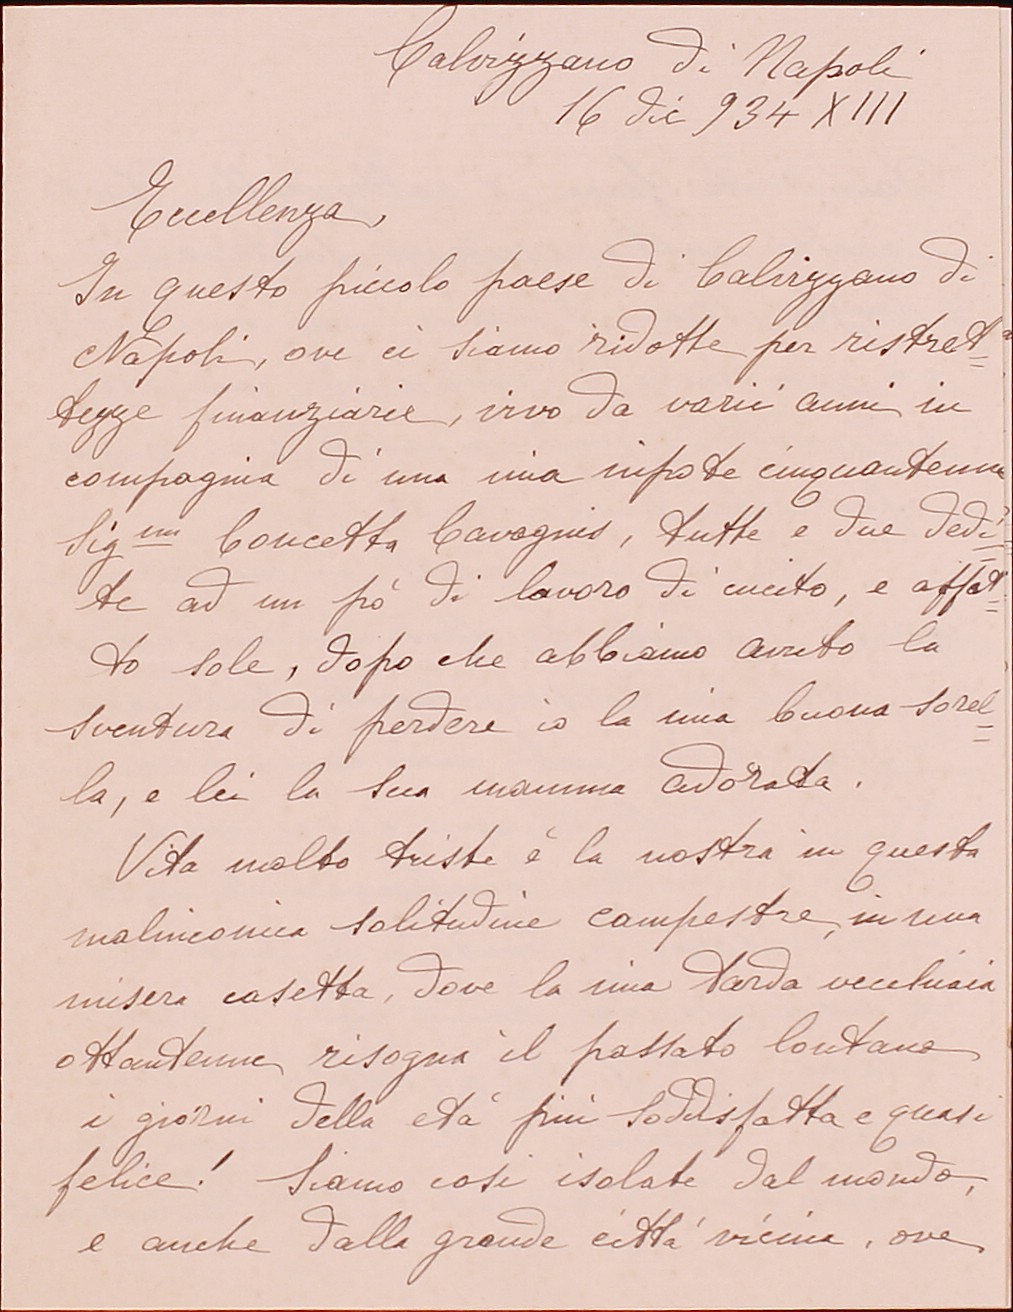 Calvizzano di Napoli
16 dic 934 XIII
Eccellenza,
In questo piccolo paese di Calvizzano di
Napoli, ove ci siamo ridotte per ristret=
tezze finanziarie, vivo da varii anni in
compagnia di una mia nipote cinquantenne
Sig.na Concetta Cavagnis, tutte e due dedi=
te ad un pó di lavoro di cucito, e affat=
to sole, dopo che abbiamo avuto la
sventura di perdere io la mia buona sorel=
la, e lei la sua mamma adorata.
Vita molto triste é la nostra in questa
malinconica solitudine campestre, in una
misera casetta, dove la mia tarda vecchiaia
ottantenne risogna il passato lontano
i giorni della etá piú soddisfatta e quasi
felice! Siamo cosi isolate dal mondo,
e anche dalla grande cittá vicina, ove